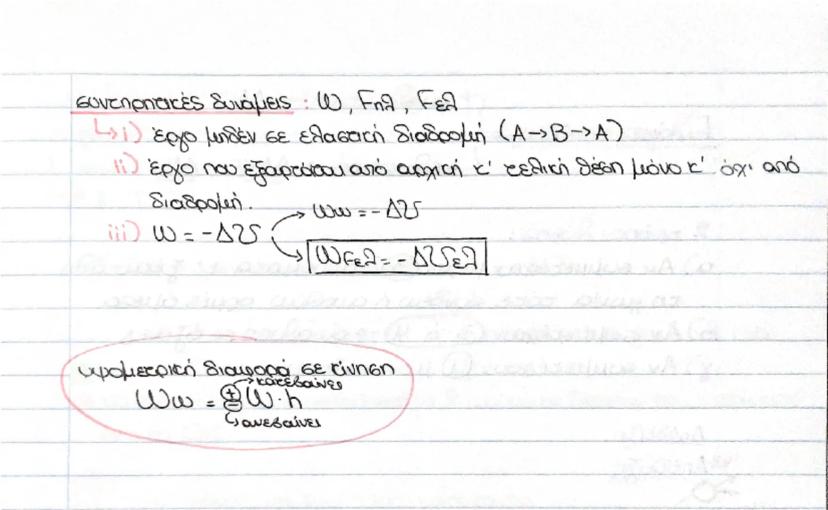 συντηρητικές δυνάμεις : W, Fηλ, Fελ
↳ i) έργο μηδέν σε ελαστική διαδρομή (A→B→A)
ii) έργο που εξαρτάται από αρχική κ' τελική θέση μόνο κ' όχι από
διαδρομή.
→ Ww = -ΔU
iii) W = -ΔU
→ WFελ = -ΔUελ
υψομετρική διαφορά σε κίνηση
→ κατεβαίνει
Ww = ± W·h
↳ ανεβαίνει